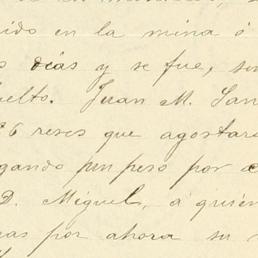 ido en la mina ó
días y se fue, sin
uelto. Juan M. San
26 reses que agostar
gando un peso por c
D. Miguel, á quién
as por ahora su